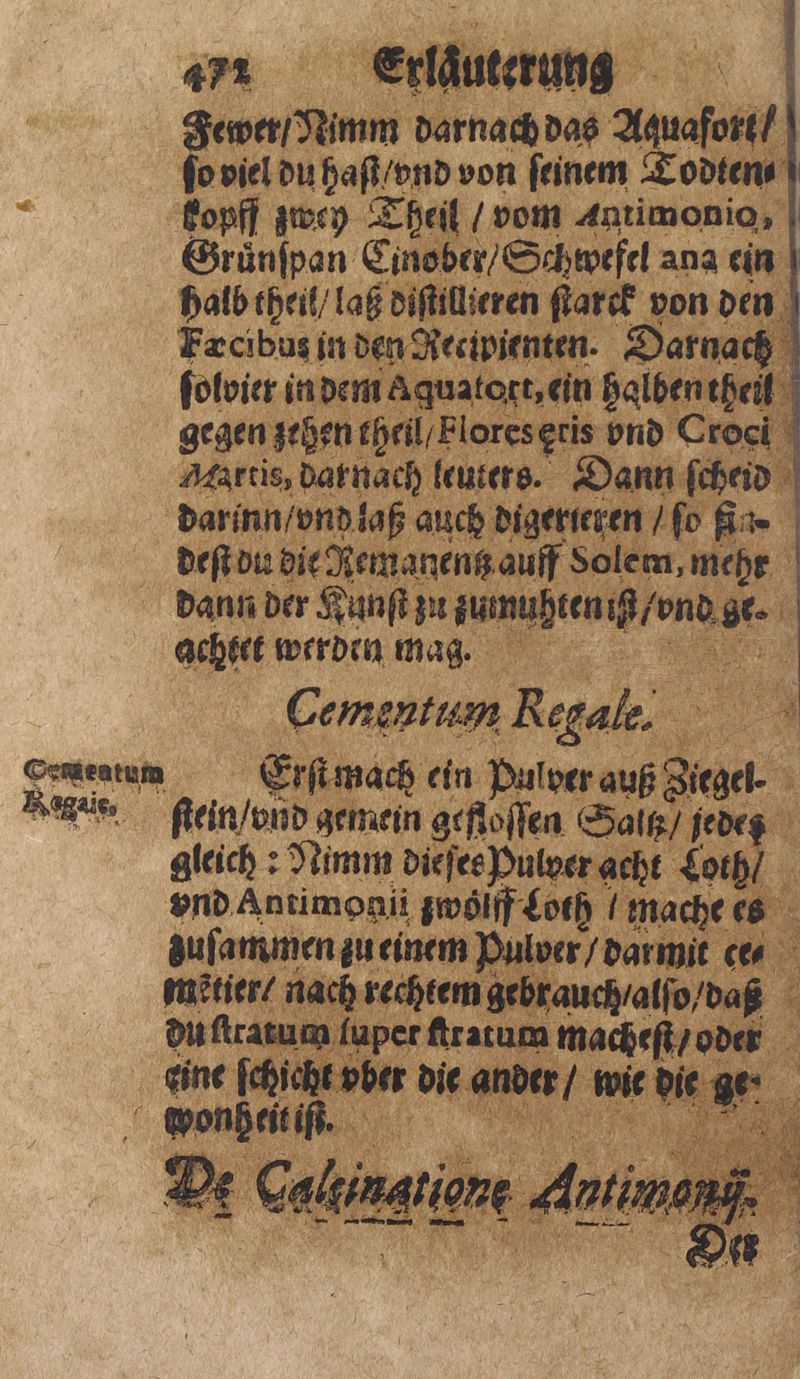 472 Erläuterung
Fewer/Nimm darnach das Aquafort/
so viel du hast/vnd von seinem Todten-
kopff zwey Theil / vom Antimonio,
Grünspan Cinober/Schwefel ana ein
halb theil/ laß distillieren starck von den
Fæcibus in den Recipienten. Darnach
solvier in dem Aquafort, ein halben theil
gegen zehen theil/Flores ęris vnd Croci
Martis, darnach leuters. Dann scheid
darinn/vnd laß auch digerieren / so fin-
dest du die Remanentz auff Solem, mehr
dann der Kunst zu zumuhten ist/vnd ge-
achtet werden mag.
Cementum Regale.
Cementum
Regale.
Erst mach ein Pulver auß Ziegel-
stein/vnd gemein geflossen Saltz/ jedes
gleich : Nimm dieses Pulver acht Loth/
vnd Antimonii zwölff Loth / mache es
zusammen zu einem Pulver/ darmit ce-
mẽtier/ nach rechtem gebrauch/also/daß
du stratum super stratum machest/oder
eine schicht vber die ander/ wie die ge-
wonheit ist.
De Calcinatione Antimonÿ.
Der